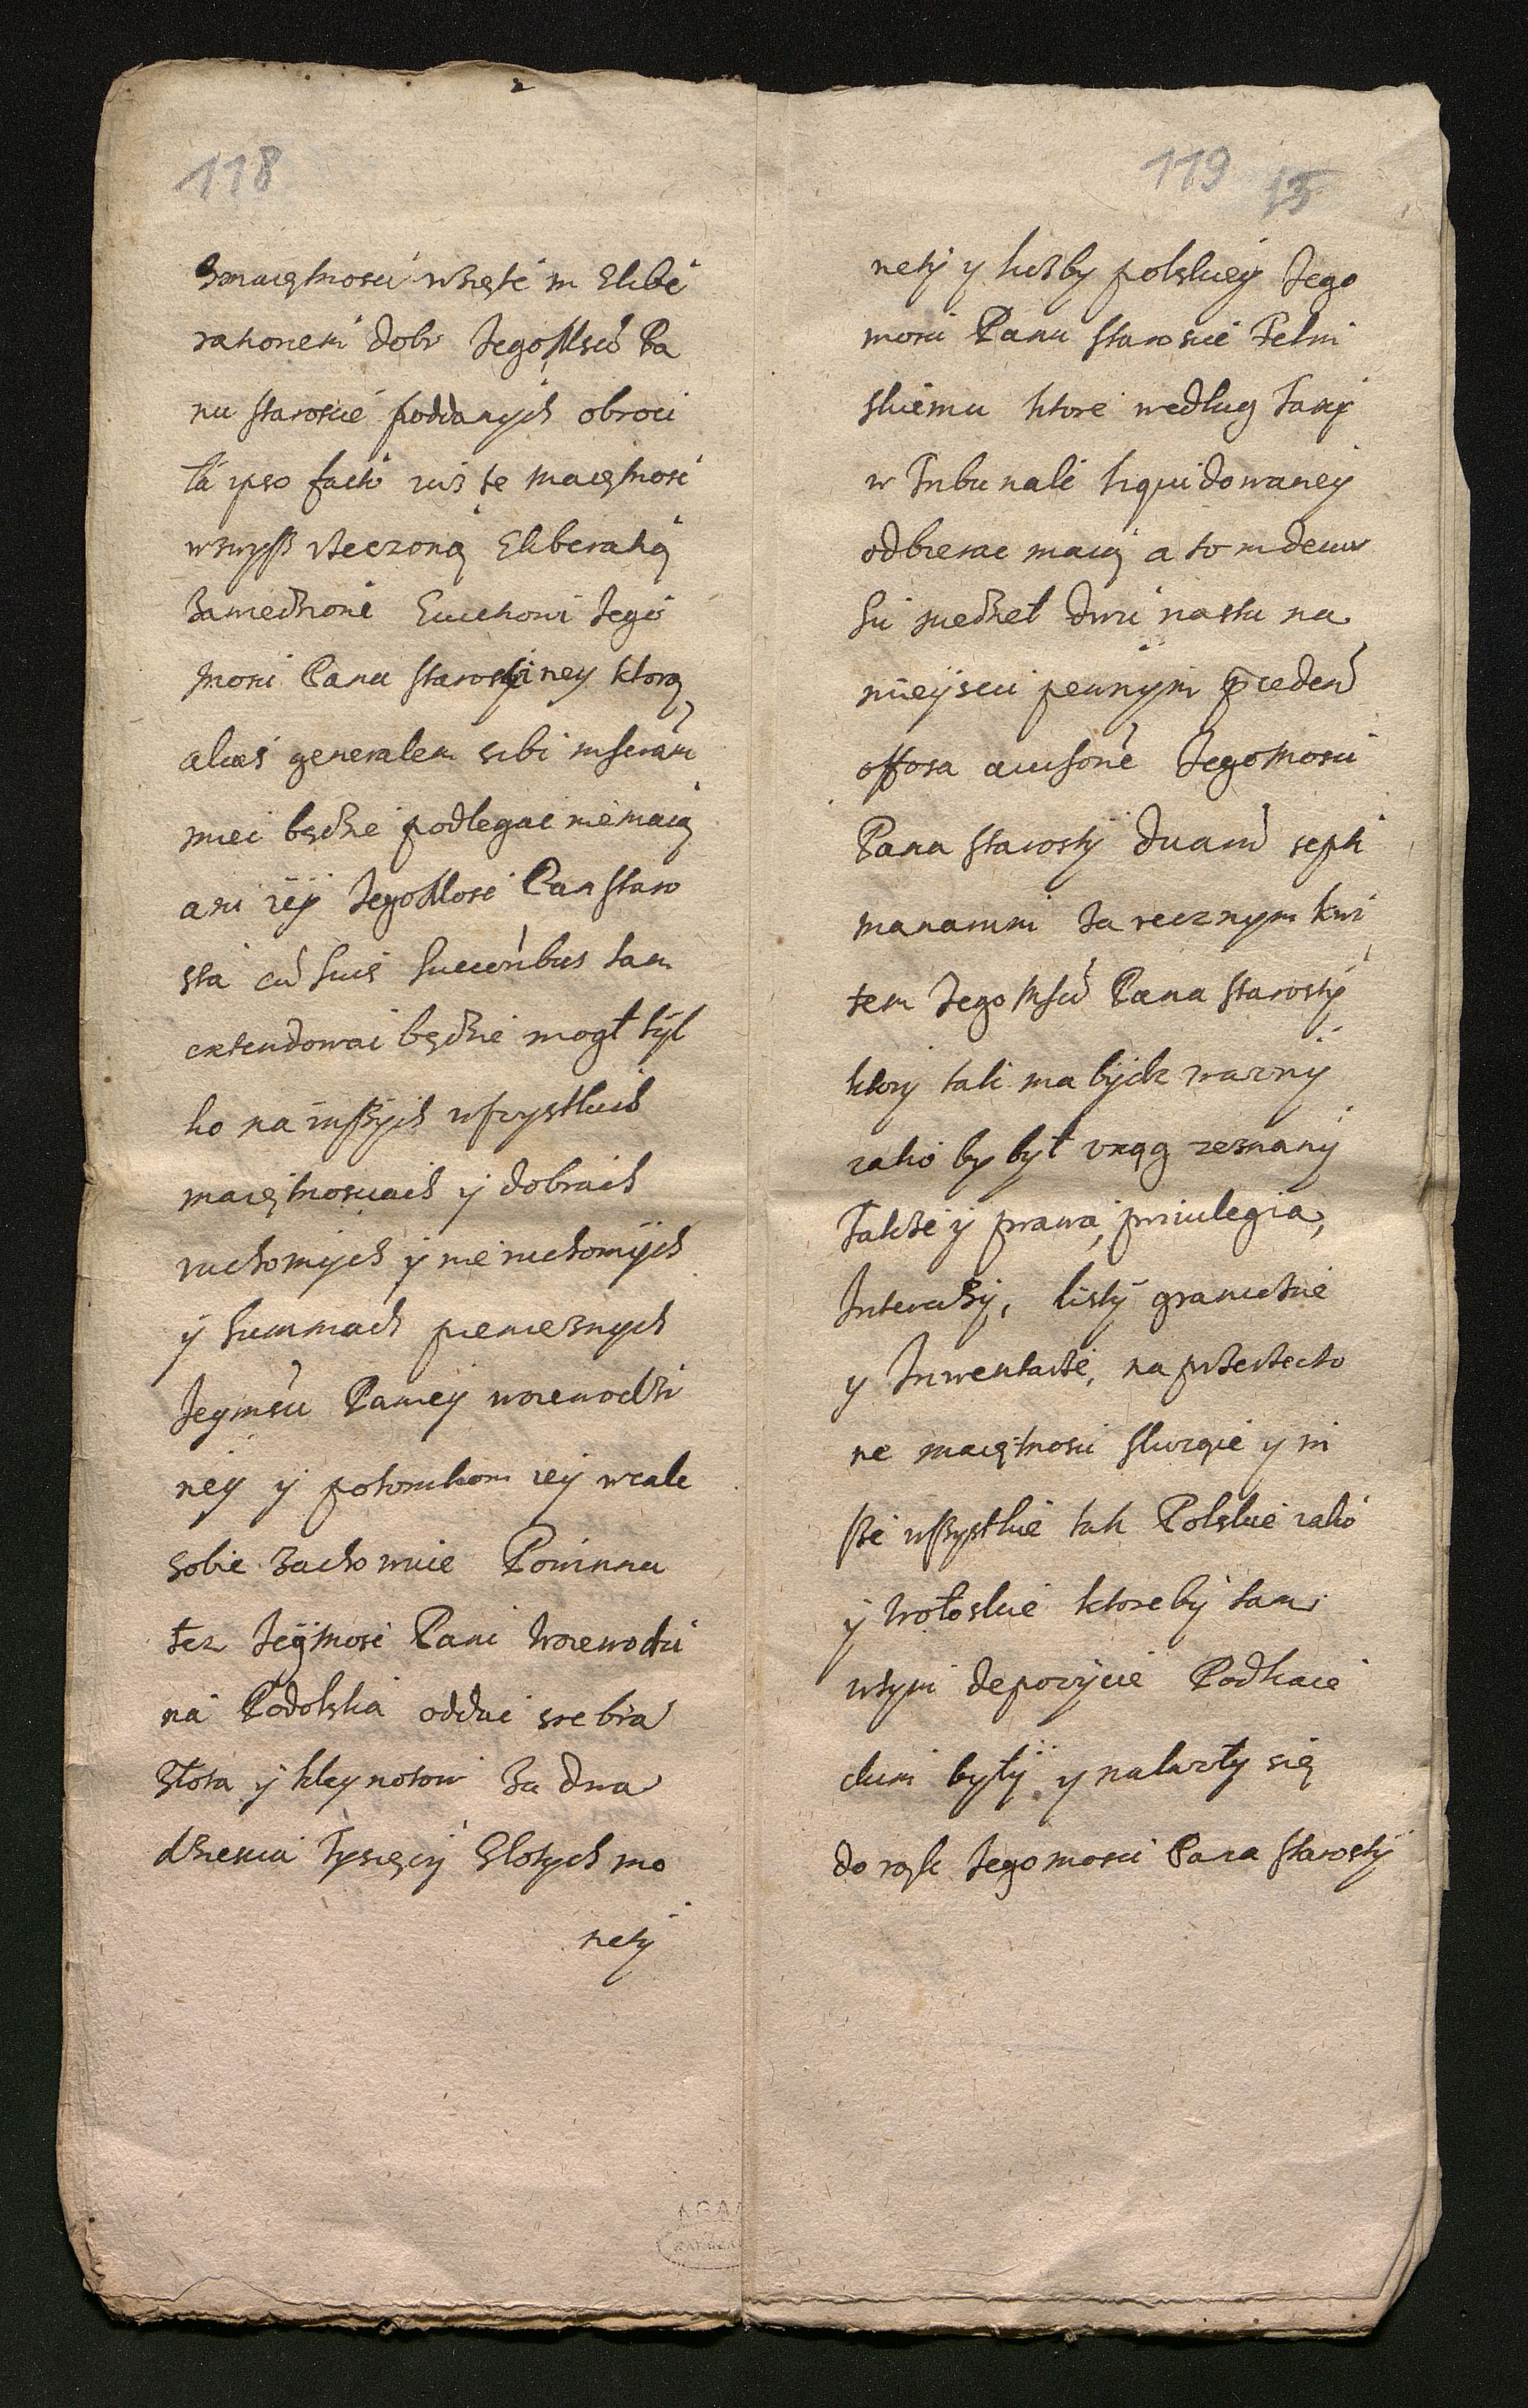 118
zmaiętnosci wzięte in Elibe
rationem dobr JegoMsci Pa
nu staroscie poddanych obroci
ła ipso facto iuż te maiętnosc
wzwysz rzeczoną Eliberatią
zawiedzione Euictiowi Jego
mosci Pana starosciney ktorą
alias generalem sibi inseram
miec będzie podlegac niemaią
ani iey JegoMosc Pan staro
sta cu suis succoribus tam
extendowac będzie mogł tyl
ko na inszych wszystkich
maiętnosciach y dobrach
ruchomych y nie ruchomych
y summach pienieznych
Jeymsci Paniey woiewodzi
ney y potomkom iey wcale
sobie zachowuie Powinna
tez Jeymosc Pani Woiewodzi
na Podolska oddac srebra
złota y kleynotow za dwa
dziescia tysięcy Złotych mo
nety
119 15
nety y liczby polskiey Jego
mosci Panu staroscie Felin
skiemu ktore według taxy
w Tribunale liquidowaney
odbierac maią a to in decur
su niedziel dwu nastu na
mieyscu pewnym
offosa auisone Jegomosci
Pana starosty duam septi
manamni za recznym kwi
tem Jego Msci Pana starosty
ktory taki ma bydz wazny
iako by był vrąg zeznany
Takze y prawa, priuilegia,
Intercizy, listy graniczne
y Inwentarze, na przerzeczo
ne maiętnosci słuzące y in
sze wszystkie tak Polskie iako
y wołoskie ktore by tam
wtym depozycie Podhaie
ckim były y nalazły się
do rąk Jegomosci Pana starosty